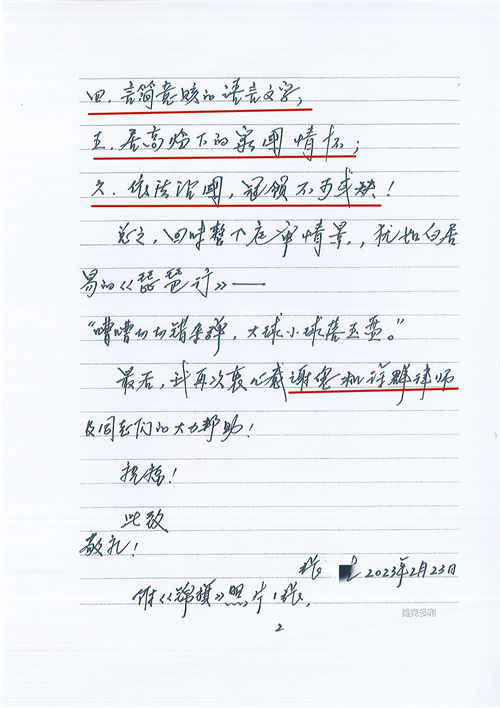 四.言简意赅的语言文字;
五.居高临下的家国情怀;
六.依法治国,冠领不可或缺!
总之,回味整个庭审情景,犹如白居
易的《琵琶行》——
“嘈嘈切切错杂弹,大球小球落玉盘。”
最后,我再次衷心感谢 和 群律师
及同志们的大力帮助!
祝福!
此致
敬礼!
张 2023年2月23日
附《锦旗》照片1张,
2
维克多利